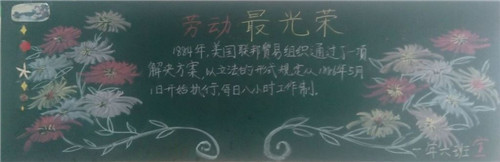 劳动最光荣
1884年,美国联邦贸易组织通过了一项
解决方案,以立法的形式规定从1886年5月
1日开始执行,每日八小时工作制。
一年六班